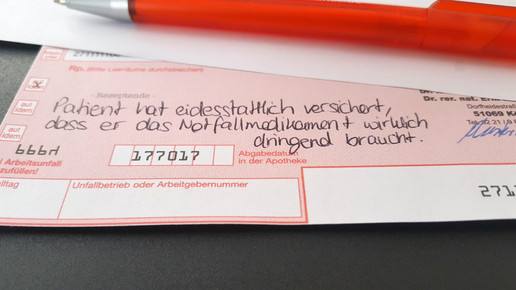 Rp. (Bitte Leerräume durchstreichen)
- Rezeptende -
aut
idem
Patient hat eidesstattlich versichert,
dass er das Notfallmedikament wirklich
dringend braucht.
aut
idem
Dr. rer. nat.
Dorfheidestraße
51069 K
666H
Arbeitsunfall
177017
Abgabedatum
in der Apotheke
Unfallbetrieb oder Arbeitgebernummer